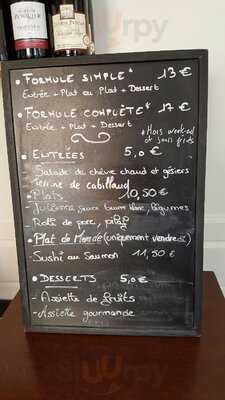 • FORMULE SIMPLE* 13 €
Entrée + Plat ou Plat + Dessert
• FORMULE COMPLÈTE* 17 €
Entrée + Plat + Dessert
* Hors week-end
et jours fériés
• ENTRÉES 5,0 €
Salade de chèvre chaud et gésiers
Terrine de cabillaud
• Plats 10,50 €
Julienne beurre blanc, légumes
Roti de porc, pilaf
• Plat de (uniquement vendredi)
- Sushi au Saumon 11,50 €
• DESSERTS 5,0 €
- Assiette de fruits
- Assiette gourmande